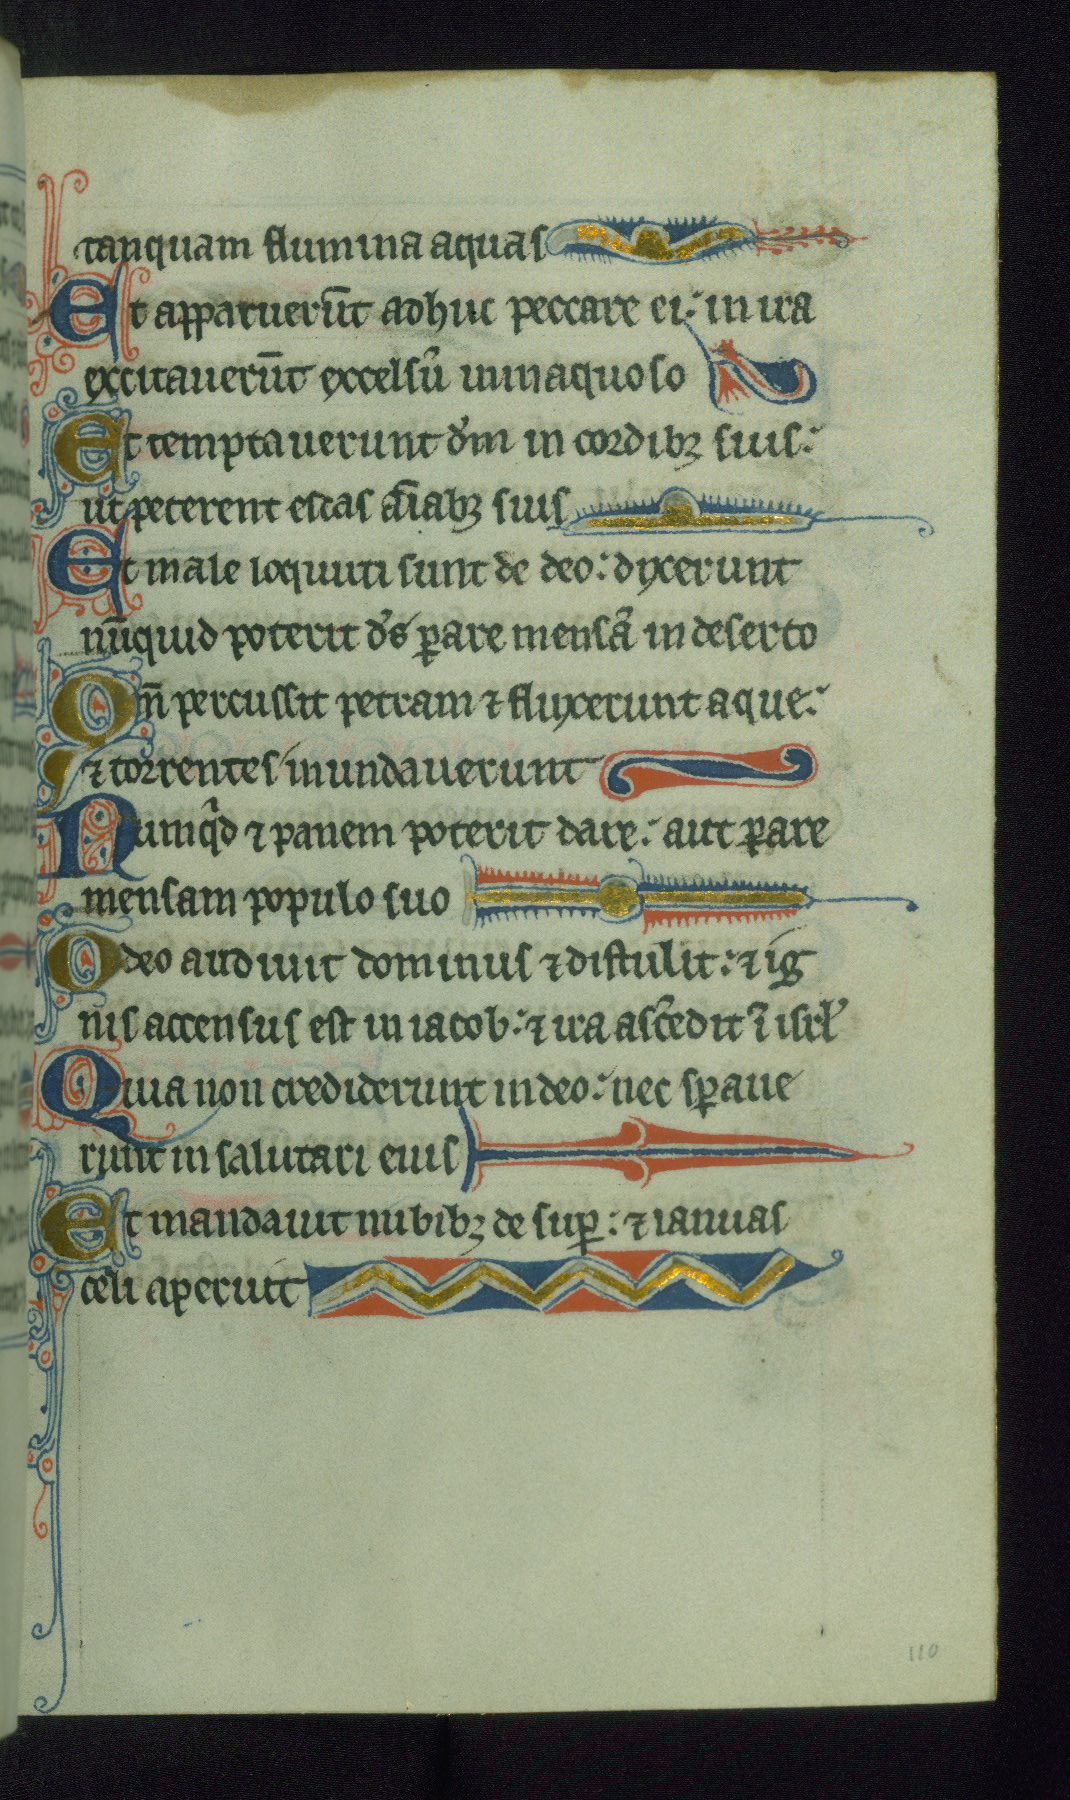 tanquam flumina aquas
Et apparuerūt adhuc peccare ei: in ira
excitauerūt excelsū in inaquoso
Et temptauerunt dn̄m in cordibꝫ suis:
ut peterent escas aīabꝫ suis
Et male loquuti sunt de deo: dixerunt
nūquid poterit ds̄ ꝑare mensā in deserto
Qm̄ percussit petram ⁊ fluxerunt aque:
⁊ torrentes inundauerunt
Numqid ⁊ panem poterit dare: aut ꝑare
mensam populo suo
Ideo audiuit dominus ⁊ distulit: ⁊ ig
nis accensus est in iacob: ⁊ ira ascēdit ī isrl̄
Quia non crediderunt in deo: nec sꝑaue
runt in salutari eius
Et mandauit nubibꝫ de suꝑ: ⁊ ianuas
celi aperuit
110